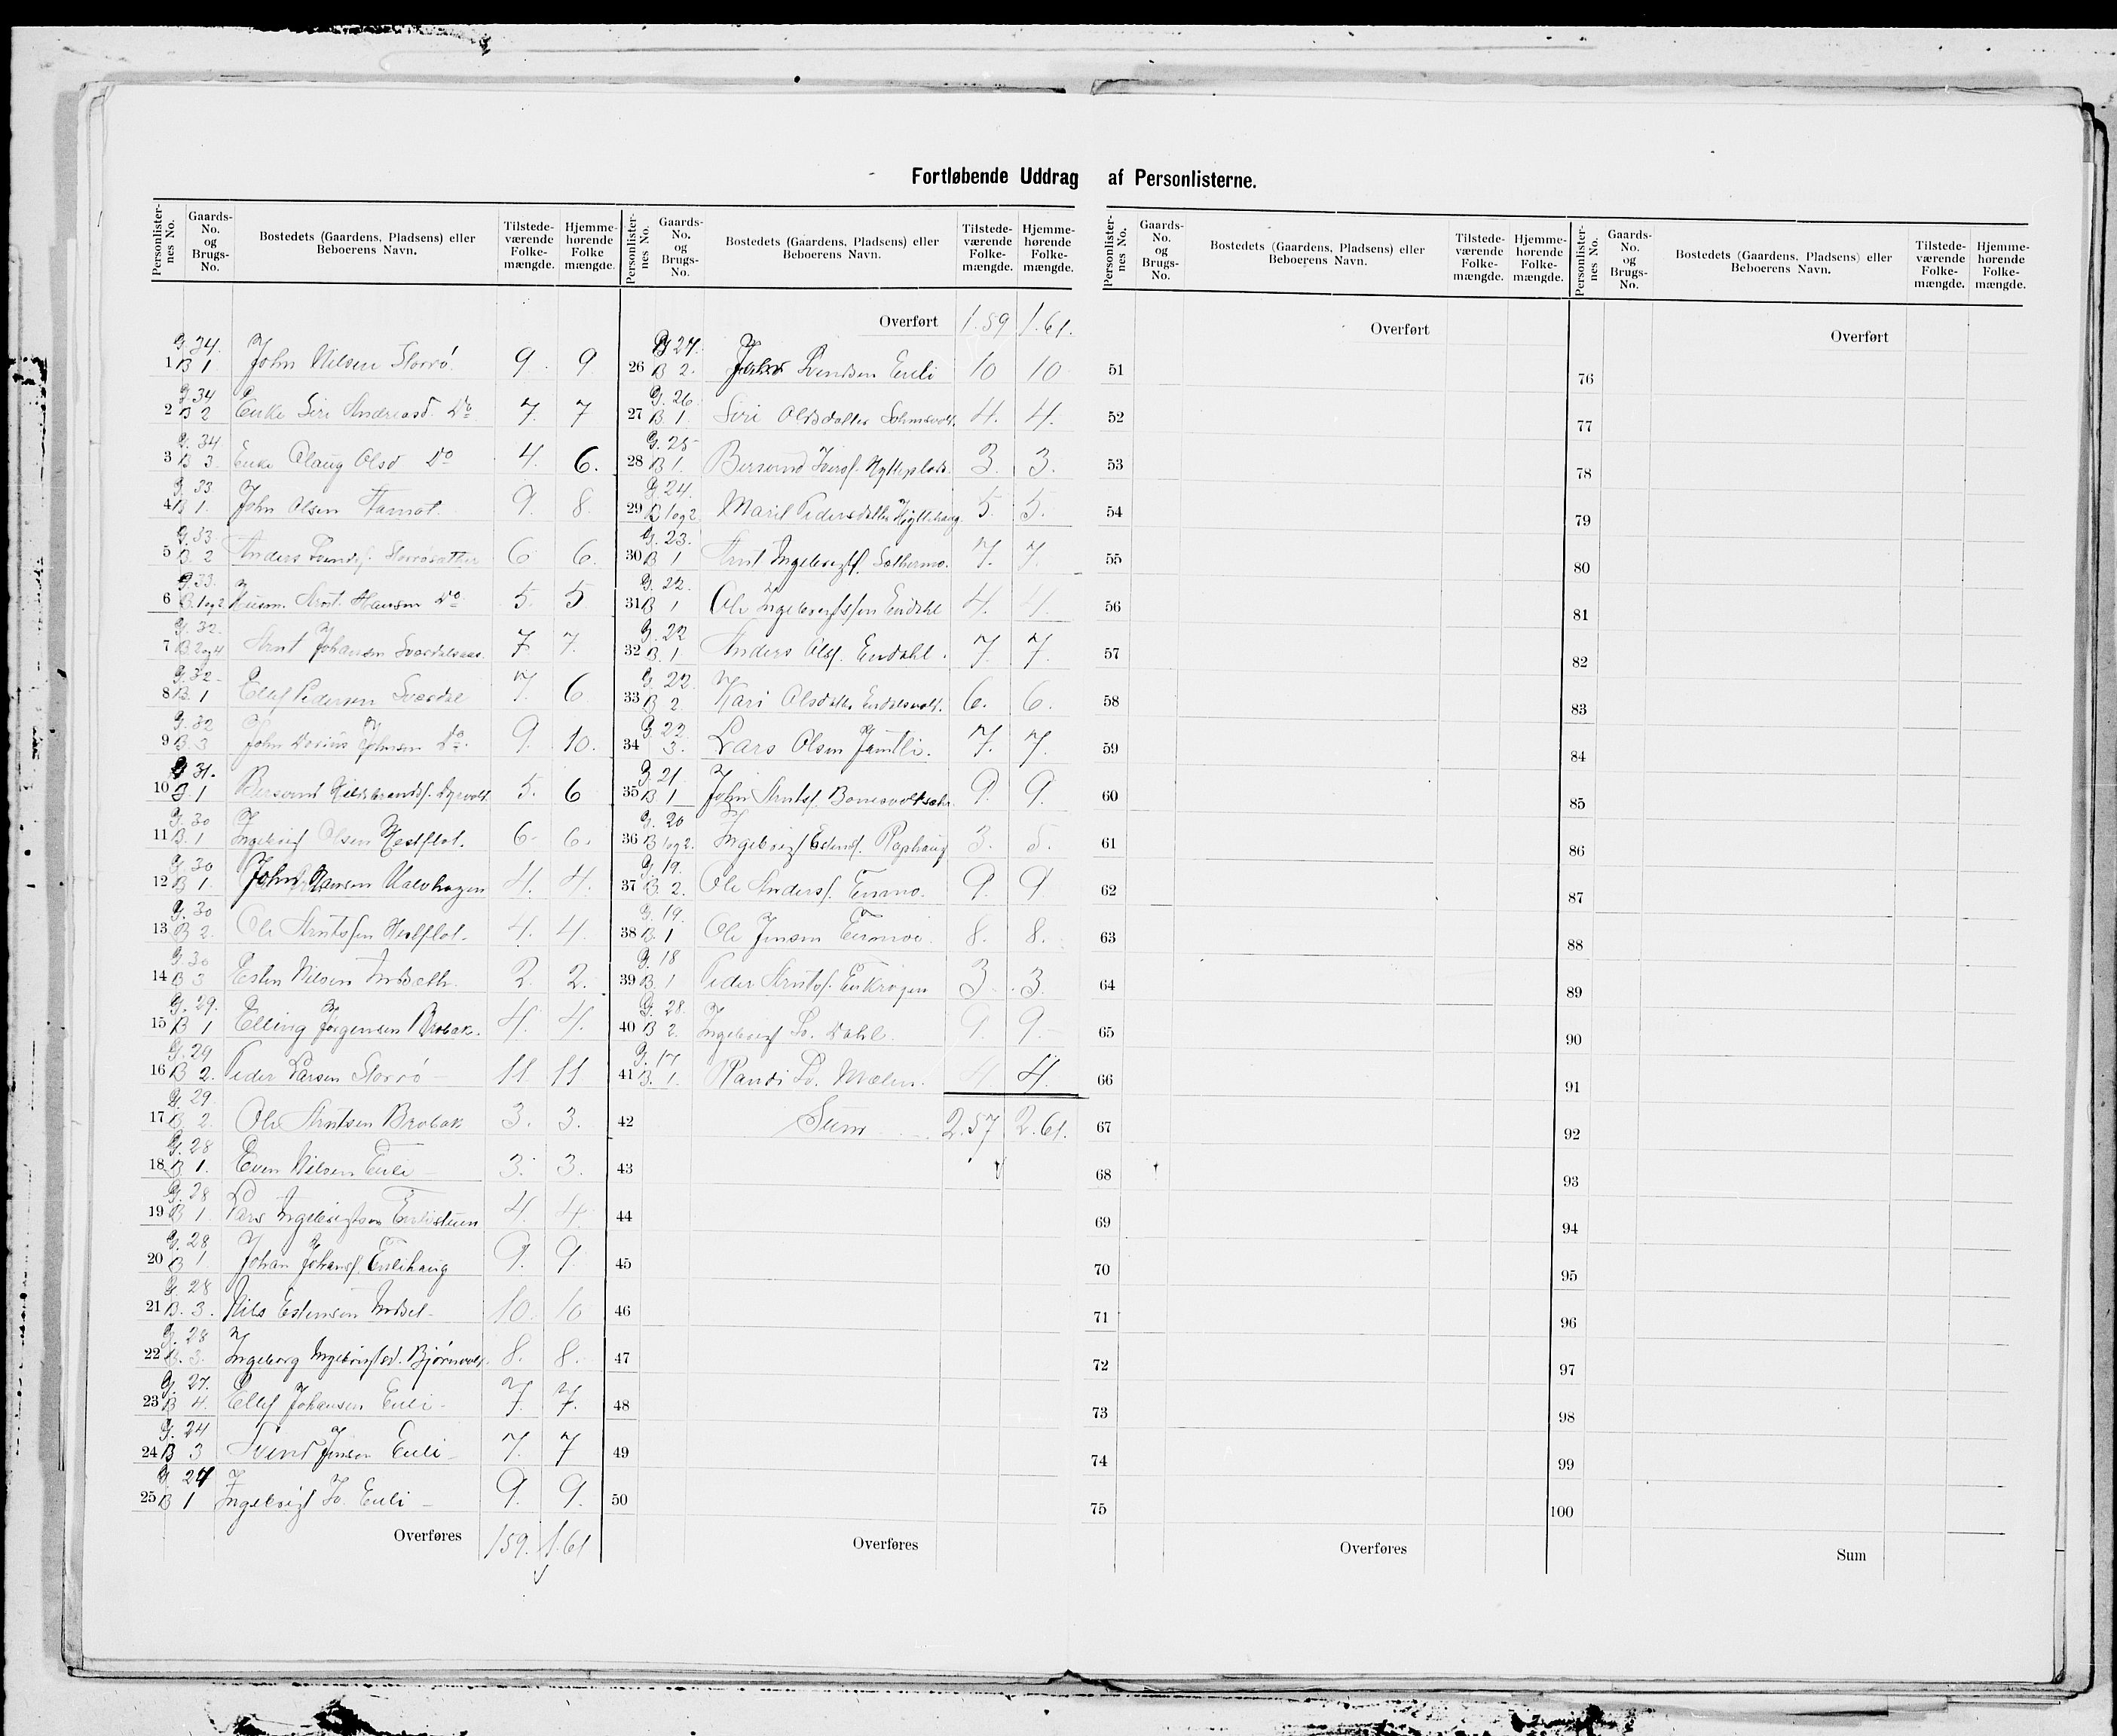 Fortløbende Uddrag af Personlisterne.
Personlisternes No. Gaards-No. og Brugs-No. Bostedets (Gaardens, Pladsens) eller Beboerens Navn. Tilstedeværende Folkemængde. Hjemmehørende Folkemængde.
G. 34.
1 B 1 John Nilsen Storrö. 9. 9
G. 34
2 B 2 Enke Siri Andreasd. Do 7. 7
G. 34
3 B 3. Enke Olaug Olsd Do 4. 6.
G. 33.
4 B 1. John Olsen 9. 8.
G. 33.
5 B. 2 Anders 6 6.
G. 33.
6 B. 1 og 2 Husm. Arnt Hansen Do 5. 5
G. 32.
7 B. 2 og 4 Arnt Johansen 7. 7.
G. 32
8 B. 1 Ellef Pedersen Sværdal 7. 6
G. 32
9 B. 3 John Dorius Johnsen Do. 9. 10.
G 31.
10 B. 1 Bersvend 5. 6
G. 30
11 B. 1 Ingebrigt Olsen Hestflot. 6. 6.
G. 30
12 B 1. John Hansen 4. 4.
G. 30
13 B 2. Ole Arntssen Hestflot. 4. 4.
G. 30
14 B 3 Esten Nilsen Indseth. 2. 2.
G. 29.
15 B 1 Elling Jørgensen Brobak. 4. 4.
G. 29
16 B 2. Peder Larsen Storrö 11 11
G. 29
17 B. 2. Ole Arntsen Brobak 3. 3.
G. 28
18 B 1. Even Nilsen Enli 3. 3.
G. 28
19 B 1. Lars Ingebrigtsen 4. 4.
G. 28
20 B 1 Johan Johansf. Enlihaug 9. 9.
G. 28
21 B. 3. Nils Estensen Indset 10. 10
G. 28
22 B. 3. Ingeborg Ingebrigtsd. Bjørnvold. 8. 8.
G. 27.
23 B 4. Ellef Johansen Enli 7. 7.
G. 27
24 B 3 Svend Jensen Enli 7. 7
G. 27
25 B 1 Ingebrigt Enli 9. 9.
Overføres 159. 1.61
Personlisternes No. Gaards-No. og Brugs-No. Bostedets (Gaardens, Pladsens) eller Beboerens Navn. Tilstedeværende Folkemængde. Hjemmehørende Folkemængde.
Overført 1.59 1.61.
G 27.
26 B 2. John Svendsen Enli 10 10
G. 26
27 B 1. Siri Olsdatter 4. 4.
G. 25
28 B 1. Bersvend 3. 3.
G. 24.
29 B 1 og 2 Marit Pedersdatter 5. 5.
G. 23.
30 B 1 Arnt Ingebrigtsf. Sæthermo. 7. 7.
G. 22.
31 B 1 Ole Ingebrigtssen Endahl 4. 4.
G. 22
32 B. 1 Anders Olsf. Endahl. 7. 7.
G. 22
33 B 2. Kari Olsdatter Endalsvold. 6. 6.
G. 22
34 3. Lars Olsen Jamtli. 7. 7.
G. 21
35 B 1 John Arntsf. 9. 9.
G. 20
36 B 1 og 2. Ingebrigt Estensf. Raphaug 3. 5.
G. 19.
37 B. 2. Ole Andersf. Enmo. 9. 9
G. 19.
38 B. 1 Ole Jensen 8. 8.
G. 18
39 B. 1 Peder Arntsf. Enkrogen 3 3.
G. 28.
40 B 2. Ingebrigt Dahl. 9. 9.
G. 17
41 B. 1. Randi 4. 4.
42 Sum 2.57 2.61.
43
44
45
46
47
48
49
50
Overføres
Personlisternes No. Gaards-No. og Brugs-No. Bostedets (Gaardens, Pladsens) eller Beboerens Navn. Tilstedeværende Folkemængde. Hjemmehørende Folkemængde.
Overført
51
52
53
54
55
56
57
58
59
60
61
62
63
64
65
66
67
68
69
70
71
72
73
74
75
Overføres
Personlisternes No. Gaards-No. og Brugs-No. Bostedets (Gaardens, Pladsens) eller Beboerens Navn. Tilstedeværende Folkemængde. Hjemmehørende Folkemængde.
Overført
76
77
78
79
80
81
82
83
84
85
86
87
88
89
90
91
92
93
94
95
96
97
98
99
100
Sum